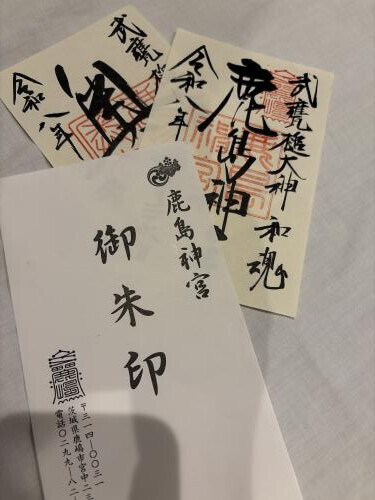 武甕槌
令和八年
武甕槌大神 和魂
鹿島神
令和八年
鹿島神宮
御朱印
〒三一四-〇〇三一
茨城県鹿嶋市宮中二三
電話〇二九九-八二-